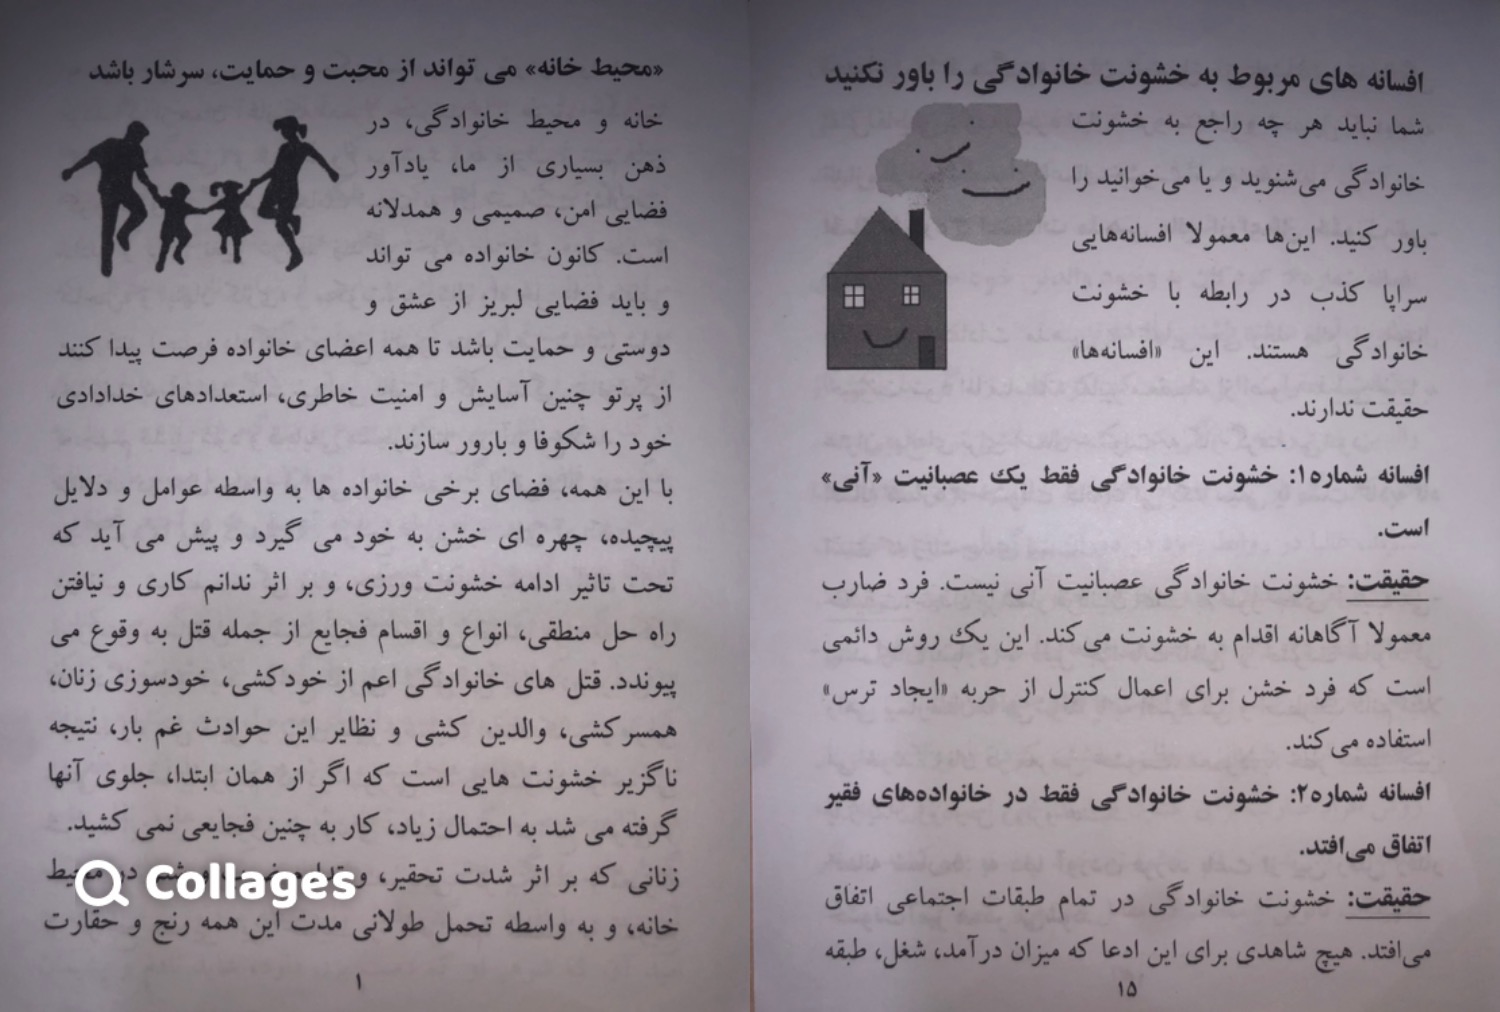 «محیط خانه» می تواند از محبت و حمایت، سرشار باشد
خانه و محیط خانوادگی، در
ذهن بسیاری از ما، یادآور
فضایی امن، صمیمی و همدلانه
است. کانون خانواده می تواند
و باید فضایی لبریز از عشق و
دوستی و حمایت باشد تا همه اعضای خانواده فرصت پیدا کنند
از پرتو چنین آسایش و امنیت خاطری، استعدادهای خدادادی
خود را شکوفا و بارور سازند.
با این همه، فضای برخی خانواده ها به واسطه عوامل و دلایل
پیچیده، چهره ای خشن به خود می گیرد و پیش می آید که
تحت تاثیر ادامه خشونت ورزی، و بر اثر ندانم کاری و نیافتن
راه حل منطقی، انواع و اقسام فجایع از جمله قتل به وقوع می
پیوندد. قتل های خانوادگی اعم از خودکشی، خودسوزی زنان،
همسرکشی، والدین کشی و نظایر این حوادث غم بار، نتیجه
ناگزیر خشونت هایی است که اگر از همان ابتدا، جلوی آنها
گرفته می شد به احتمال زیاد، کار به چنین فجایعی نمی کشید.
زنانی که بر اثر شدت تحقیر، و در محیط
خانه، و به واسطه تحمل طولانی مدت این همه رنج و حقارت
۱
Collages
افسانه های مربوط به خشونت خانوادگی را باور نکنید
شما نباید هر چه راجع به خشونت
خانوادگی می‌شنوید و یا می‌خوانید را
باور کنید. این‌ها معمولا افسانه‌هایی
سراپا کذب در رابطه با خشونت
خانوادگی هستند. این «افسانه‌ها»
حقیقت ندارند.
افسانه شماره۱: خشونت خانوادگی فقط یک عصبانیت «آنی»
است.
حقیقت: خشونت خانوادگی عصبانیت آنی نیست. فرد ضارب
معمولا آگاهانه اقدام به خشونت می‌کند. این یک روش دائمی
است که فرد خشن برای اعمال کنترل از حربه «ایجاد ترس»
استفاده می‌کند.
افسانه شماره۲: خشونت خانوادگی فقط در خانواده‌های فقیر
اتفاق می‌افتد.
حقیقت: خشونت خانوادگی در تمام طبقات اجتماعی اتفاق
می‌افتد. هیچ شاهدی برای این ادعا که میزان درآمد، شغل، طبقه
۱۵